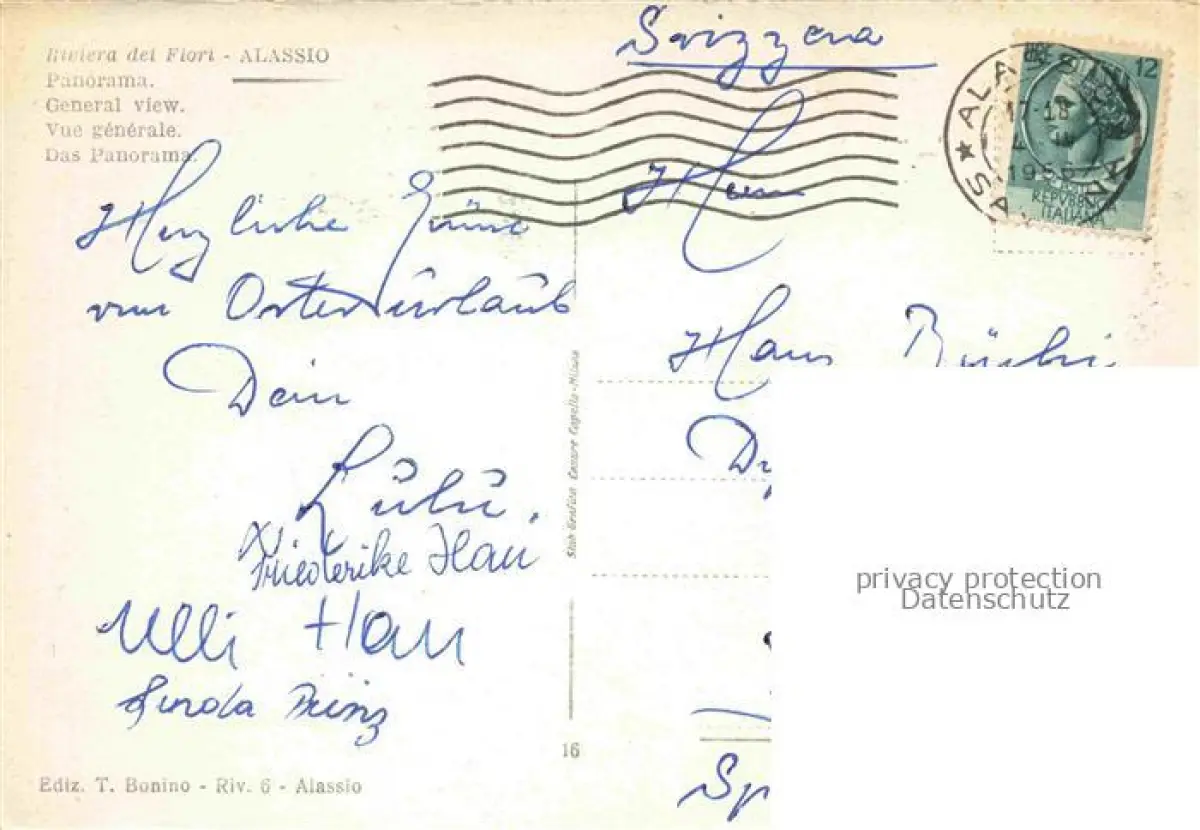 Riviera dei Fiori - ALASSIO
Panorama.
General view.
Vue générale.
Das Panorama.
Herzliche Grüsse
vom Osterurlaub
Dein
Lulu.
Friederike Hau
Ulli Hau
Linda Prinz
Ediz. T. Bonino - Riv. 6 - Alassio
16
Stab Grafico Cesare Capello - Milano
Svizzera
Herrn
Hans
ALASSIO
17-18
SAVONA
12
REPVBBLICA
ITALIANA
privacy protection
Datenschutz
Sp